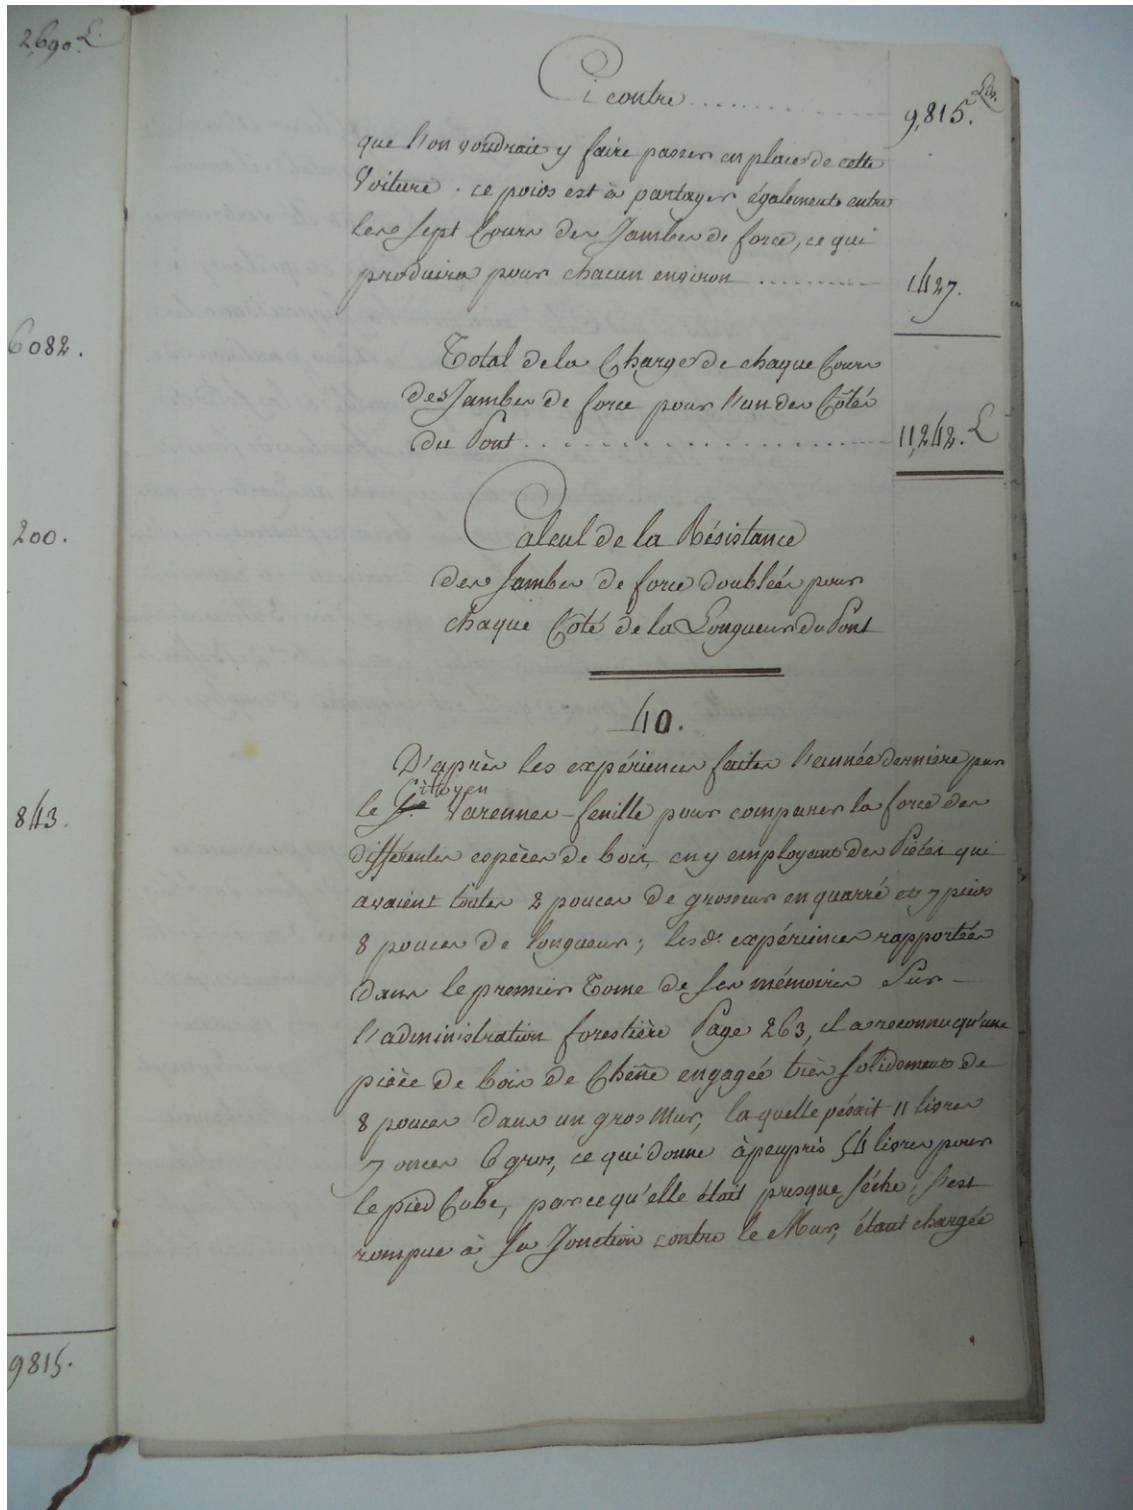 2,690.ᴸ
6082.
200.
843.
9815.
Ci contre .......... 9,815.ᴸᵇˢ·
que l'on voudrait y faire passer en place de cette
Voiture. ce poids est à partager également entre
les sept Cours des Jambes de force, ce qui
produira pour chacun environ .......... 1427.
Total de la Charge de chaque Cours
des Jambes de force pour l'un des Côtés
du Pont .......... 11,242.ᴸ
Calcul de la Résistance
des Jambes de force doublées pour
chaque Côté de la Longueur du Pont
40.
D'après les expériences faites l'année derniere par
le Citoyen Varennes-fenille pour comparer la force des
différentes espèces de bois, en y employant des Pièces qui
avaient toutes 2 pouces de grosseur en quarré et 7 pieds
8 pouces de longueur; lesd. expériences rapportées
dans le premier Tome de ses mémoires Sur
l'administration forestière Page 263, il a reconnu qu'une
pièce de bois de Chêne engagée très solidement de
8 pouces dans un gros Mur, laquelle pésait 11 livres
7 onces 6 gros, ce qui donne àpeuprès 54 livres pour
le pied Cube, parcequ'elle était presque séche, s'est
rompue à sa Jonction contre le Mur, étant chargée